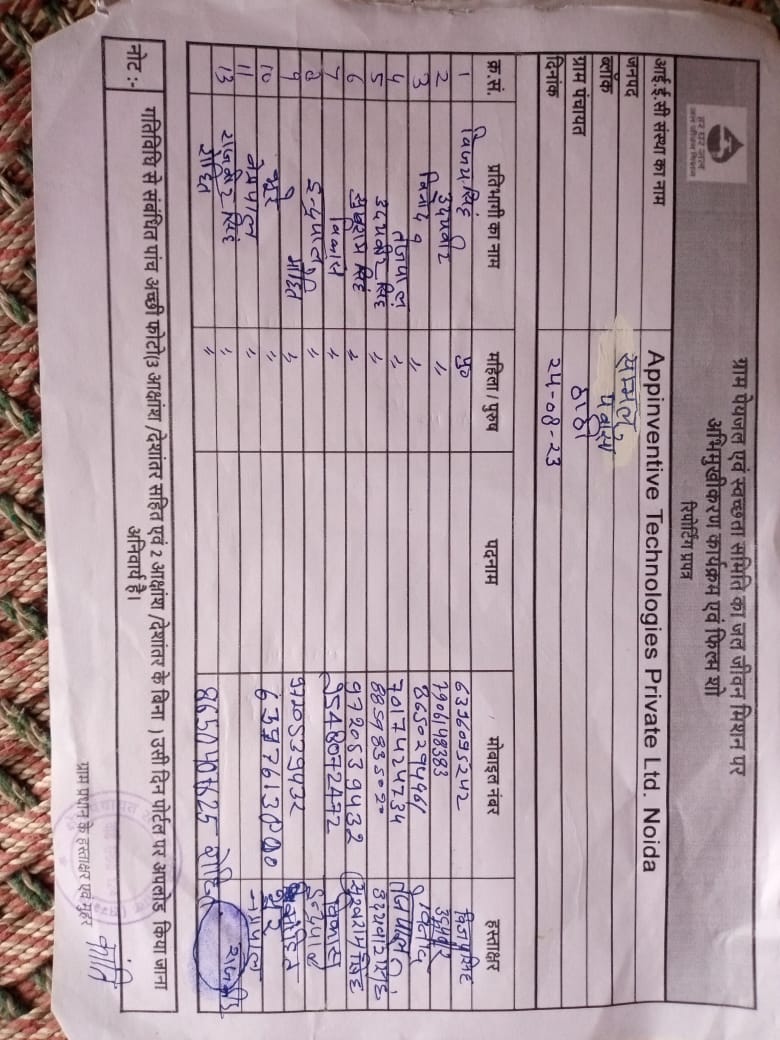 हर घर जल
जल जीवन मिशन
ग्राम पेयजल एवं स्वच्छता समिति का जल जीवन मिशन पर
अभिमुखीकरण कार्यक्रम एवं फिल्म शो
रिपोर्टिंग प्रपत्र
आई.ई.सी संस्था का नाम Appinventive Technologies Private Ltd. Noida
जनपद सम्भल
ब्लॉक पंवासा
ग्राम पंचायत
दिनांक 24-08-23
क्र.सं. प्रतिभागी का नाम महिला / पुरुष पदनाम मोबाइल नंबर हस्ताक्षर
1 विजय सिंह पु० 6396095242 विजय सिंह
2 उदयवीर " 7906148383 उदयवीर
3 विनोद " 8650294461 विनोद
4 तेजपाल " 7017424734 तेजपाल
5 उदयवीर सिंह " उदयवीर सिंह
6 सुखराम सिंह " 9720539432 सुखराम सिंह
7 विकास " 9548072472 विकास
8 इन्द्रपाल " इन्द्रपाल
9 मोहित " 9720539432 मोहित
10 भूरे " भूरे
11 "
13 राजवीर सिंह "
रोहित 8650407625 रोहित
नोट :- गतिविधि से संबंधित पांच अच्छी फोटो(3 आक्षांश /देशांतर सहित एवं 2 आक्षांश /देशांतर के बिना ) उसी दिन पोर्टल पर अपलोड किया जाना
अनिवार्य है।
ग्राम प्रधान के हस्ताक्षर एवं मुहर